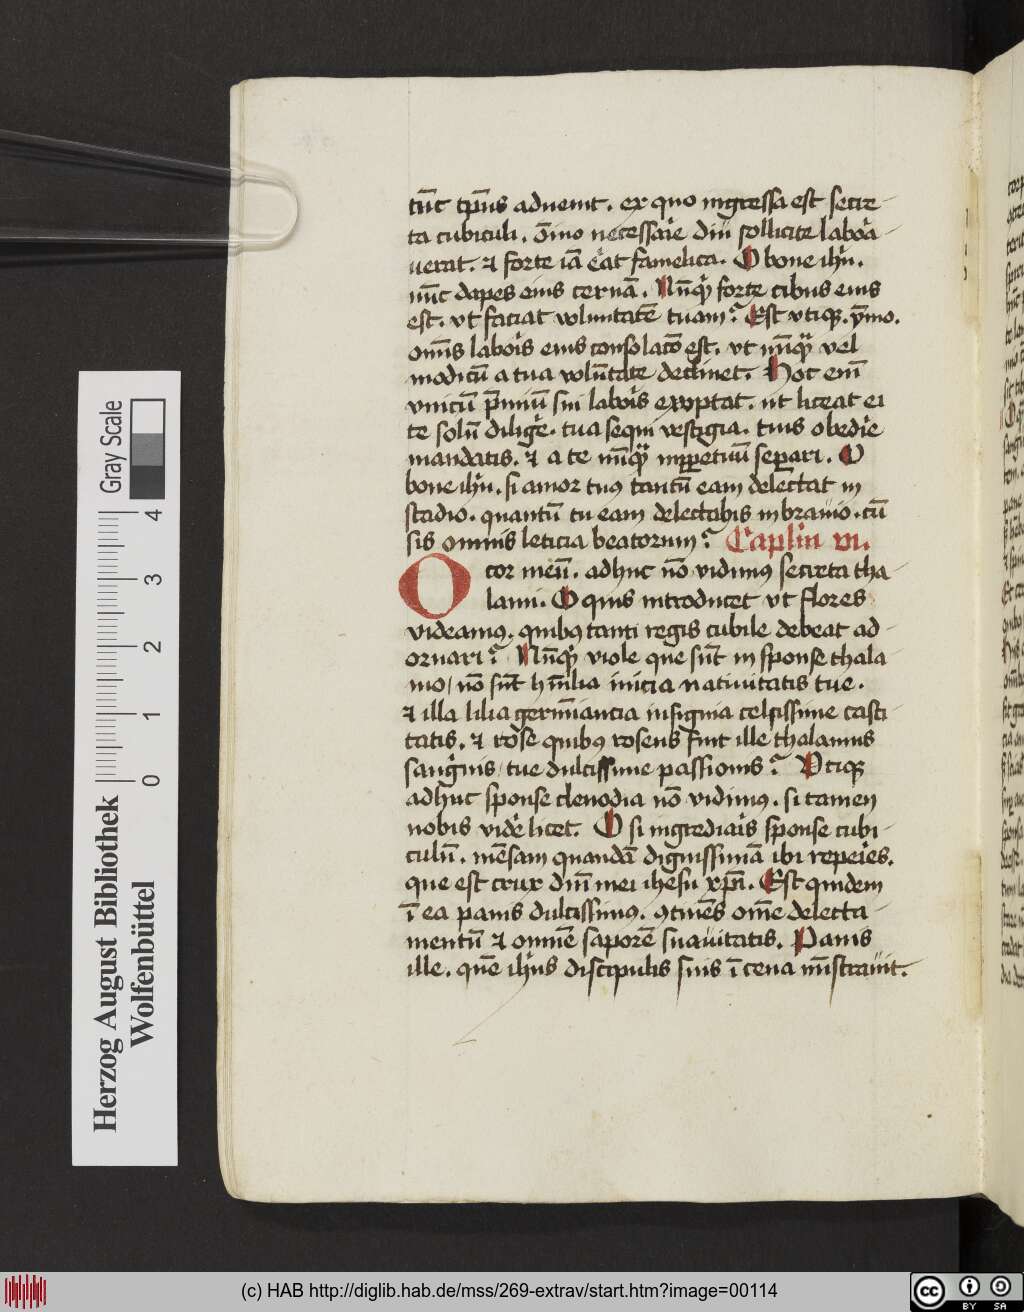 tūc tp̄us aduenit. ex quo ingressa est secre-
ta cubiculi. o̅ino necessaīe diu sollicite labora-
uerat. ⁊ forte iā erat famelica. O bone ihū.
nūc dapes eius cernā. Nūq̄ forte cibus eius
est. vt faciat voluntatē tuam? Est vtiq. ymo.
om̄s labor̄s eius consolaco̅ est. vt nūq̄ vel
modicū a tua volūtate declinet. Hoc enī
vnicū p̄miū sui labor̄s exoptat. ut liceat ei
te solū diliger̄. tua sequi vestigia. tuis obedir̄e
mandatis. ⁊ a te nūq̄ inꝑpetuū seꝑari. O
bone ihū. si amor tuꝯ tantū eam delectat in
stadio. quantū tu eam delectabis in brauio. cū
sis omnis leticia beatorum? Caplm̄ vi.
O cor meū. adhuc nō vidimꝯ secreta tha-
lami. O quis introducet vt flores
videamꝯ. quibꝯ tanti regis cubile debeat ad-
ornari? Nūq̄ viole que sūt in sponse thala
mo / nō sūt hūilia inicia natiuitatis tue.
⁊ illa lilia germīancia insignia celsissime casti-
tatis. ⁊ rose quibꝯ rosens fuit ille thalamus
sanḡnis / tue dulcissime passionis? Vtiq
adhuc sponse clenodia nō vidimꝯ. si tamen
nobis vider̄ licet. O si ingrediar̄s sponse cubi-
culū. mēsam quandā dignissimā ibi reper̄es.
que est crux dn̄i mei ihesu xp̄i. Est quidem
ī ea panis dulcissimꝯ. ꝯtinēs om̄e delecta-
mentū ⁊ omnē saporē suauitatis. Panis
ille. quē ihūs discipulis suis ī cena mīstrauit.
Herzog August Bibliothek
Wolfenbüttel
Gray Scale
0 1 2 3 4
(c) HAB http://diglib.hab.de/mss/269-extrav/start.htm?image=00114
cc BY SA